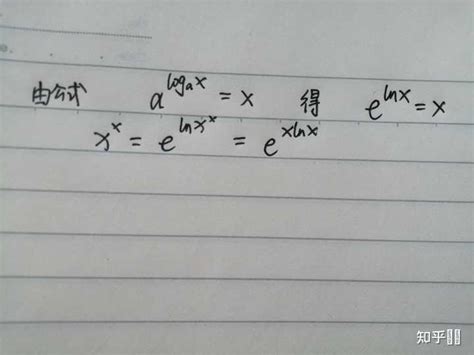 由公式 a^{log_a x} = x 得 e^{lnx} = x
x^x = e^{lnx^x} = e^{xlnx}
知乎